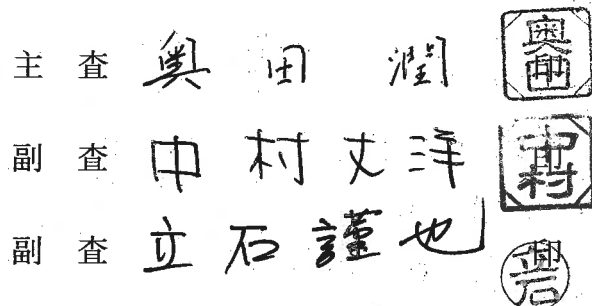 主査 奥田 潤 奥田印
副査 中村 丈洋 中村印
副査 立石 謹也 立石印